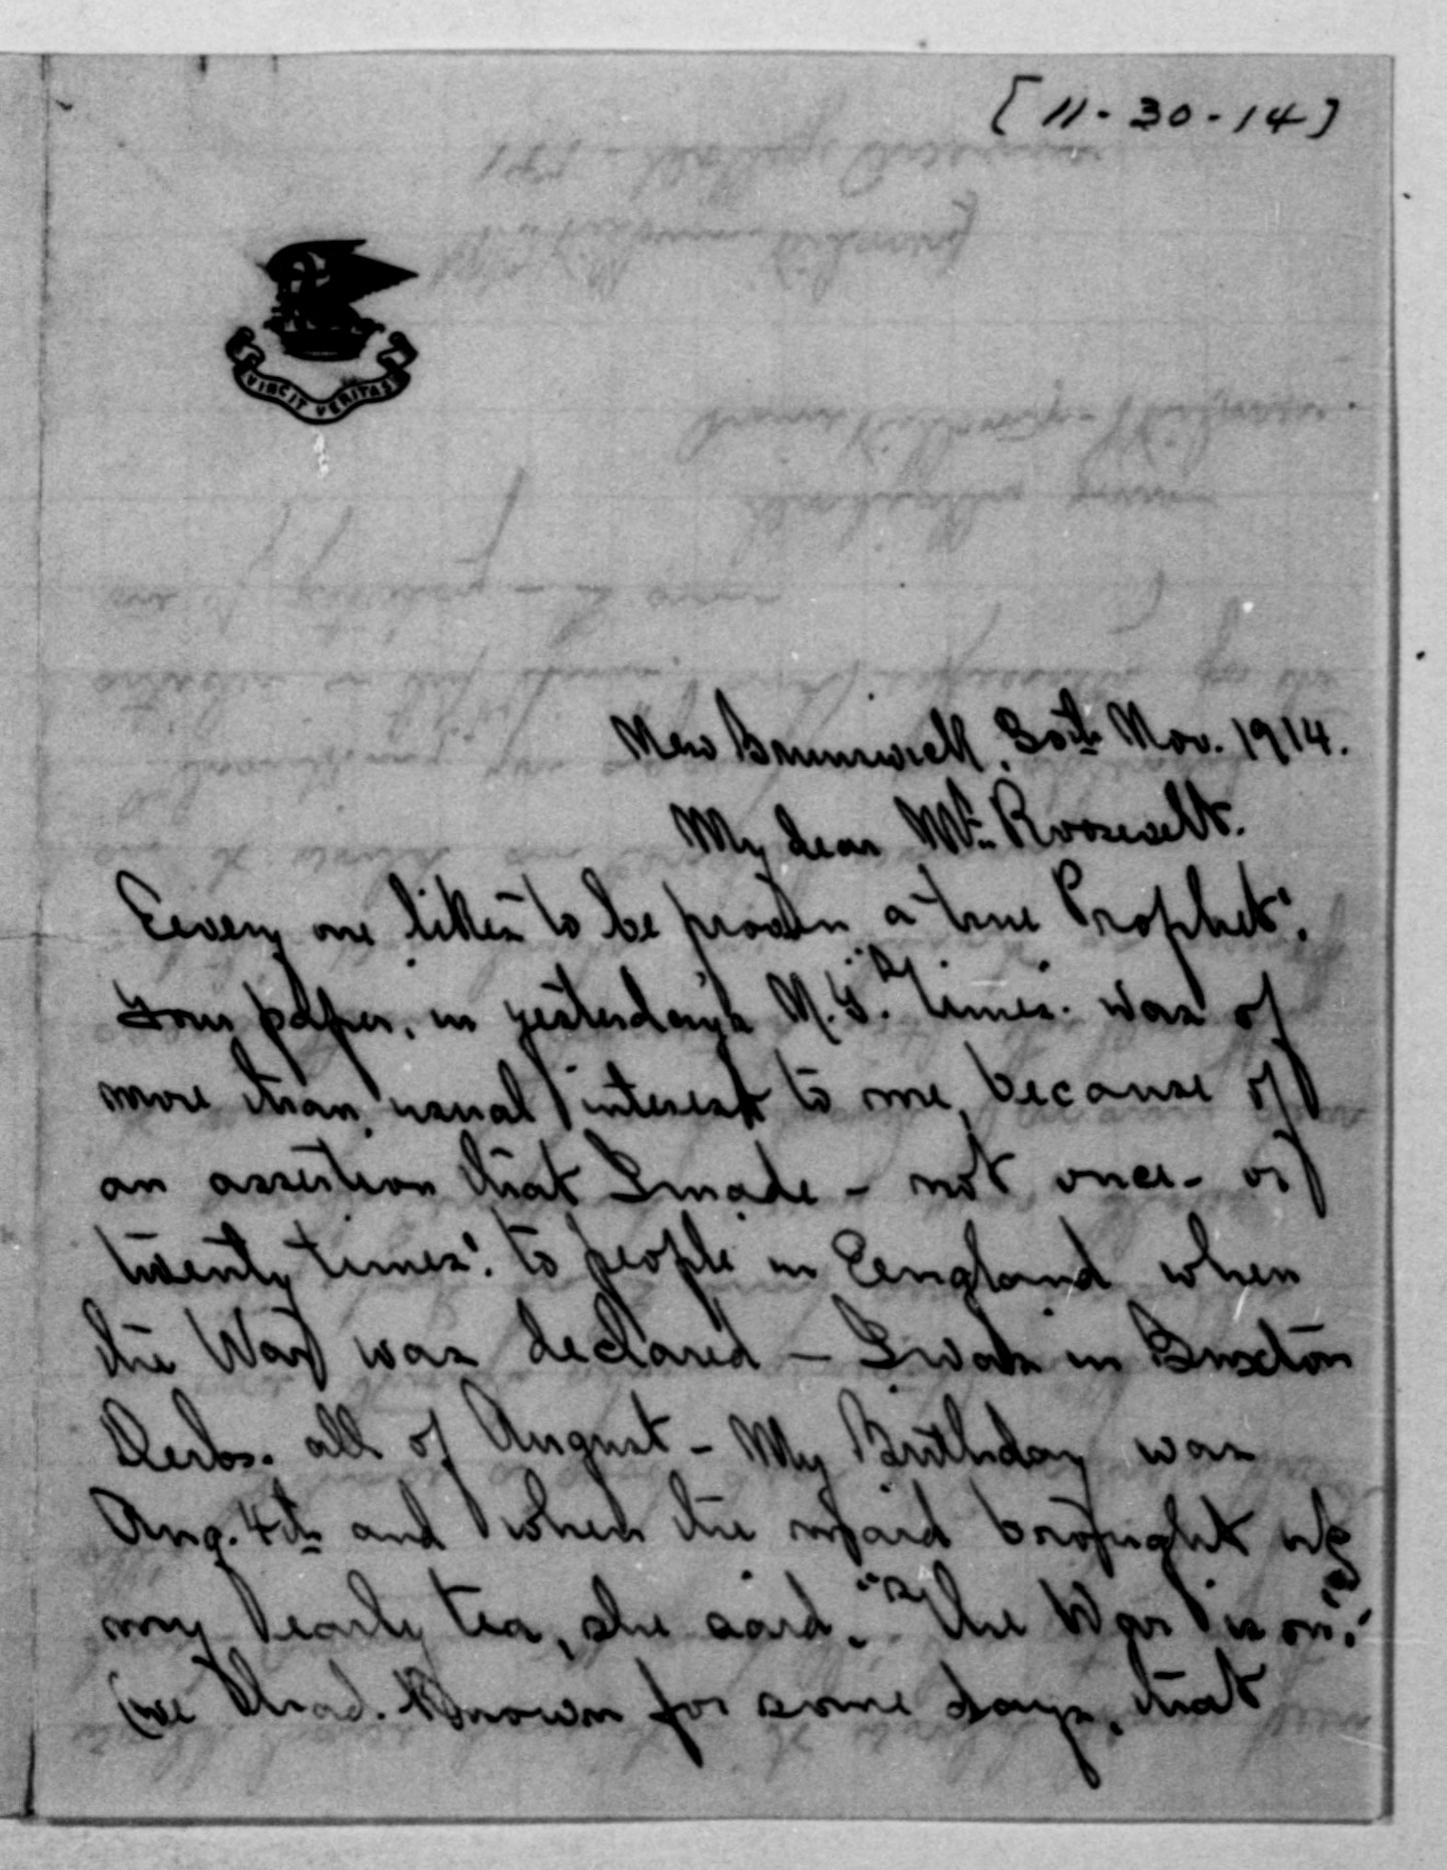 [11-30-14]
VINCIT VERITAS
New Brunswick, 30th Nov. 1914.
My dear Mr. Roosevelt.
Every one likes to be proven a true Prophet!
Your paper, in yesterday's N.Y. "Times" was of
more than usual interest to me, because of
an assertion that I made - not once - or
twenty times! to people in England when
the War was declared - I was in Buxton
Derbs. all of August - My Birthday was
Aug. 4th and when the maid brought up
my early tea, she said. "The War is on"!
(we had known for some days, that